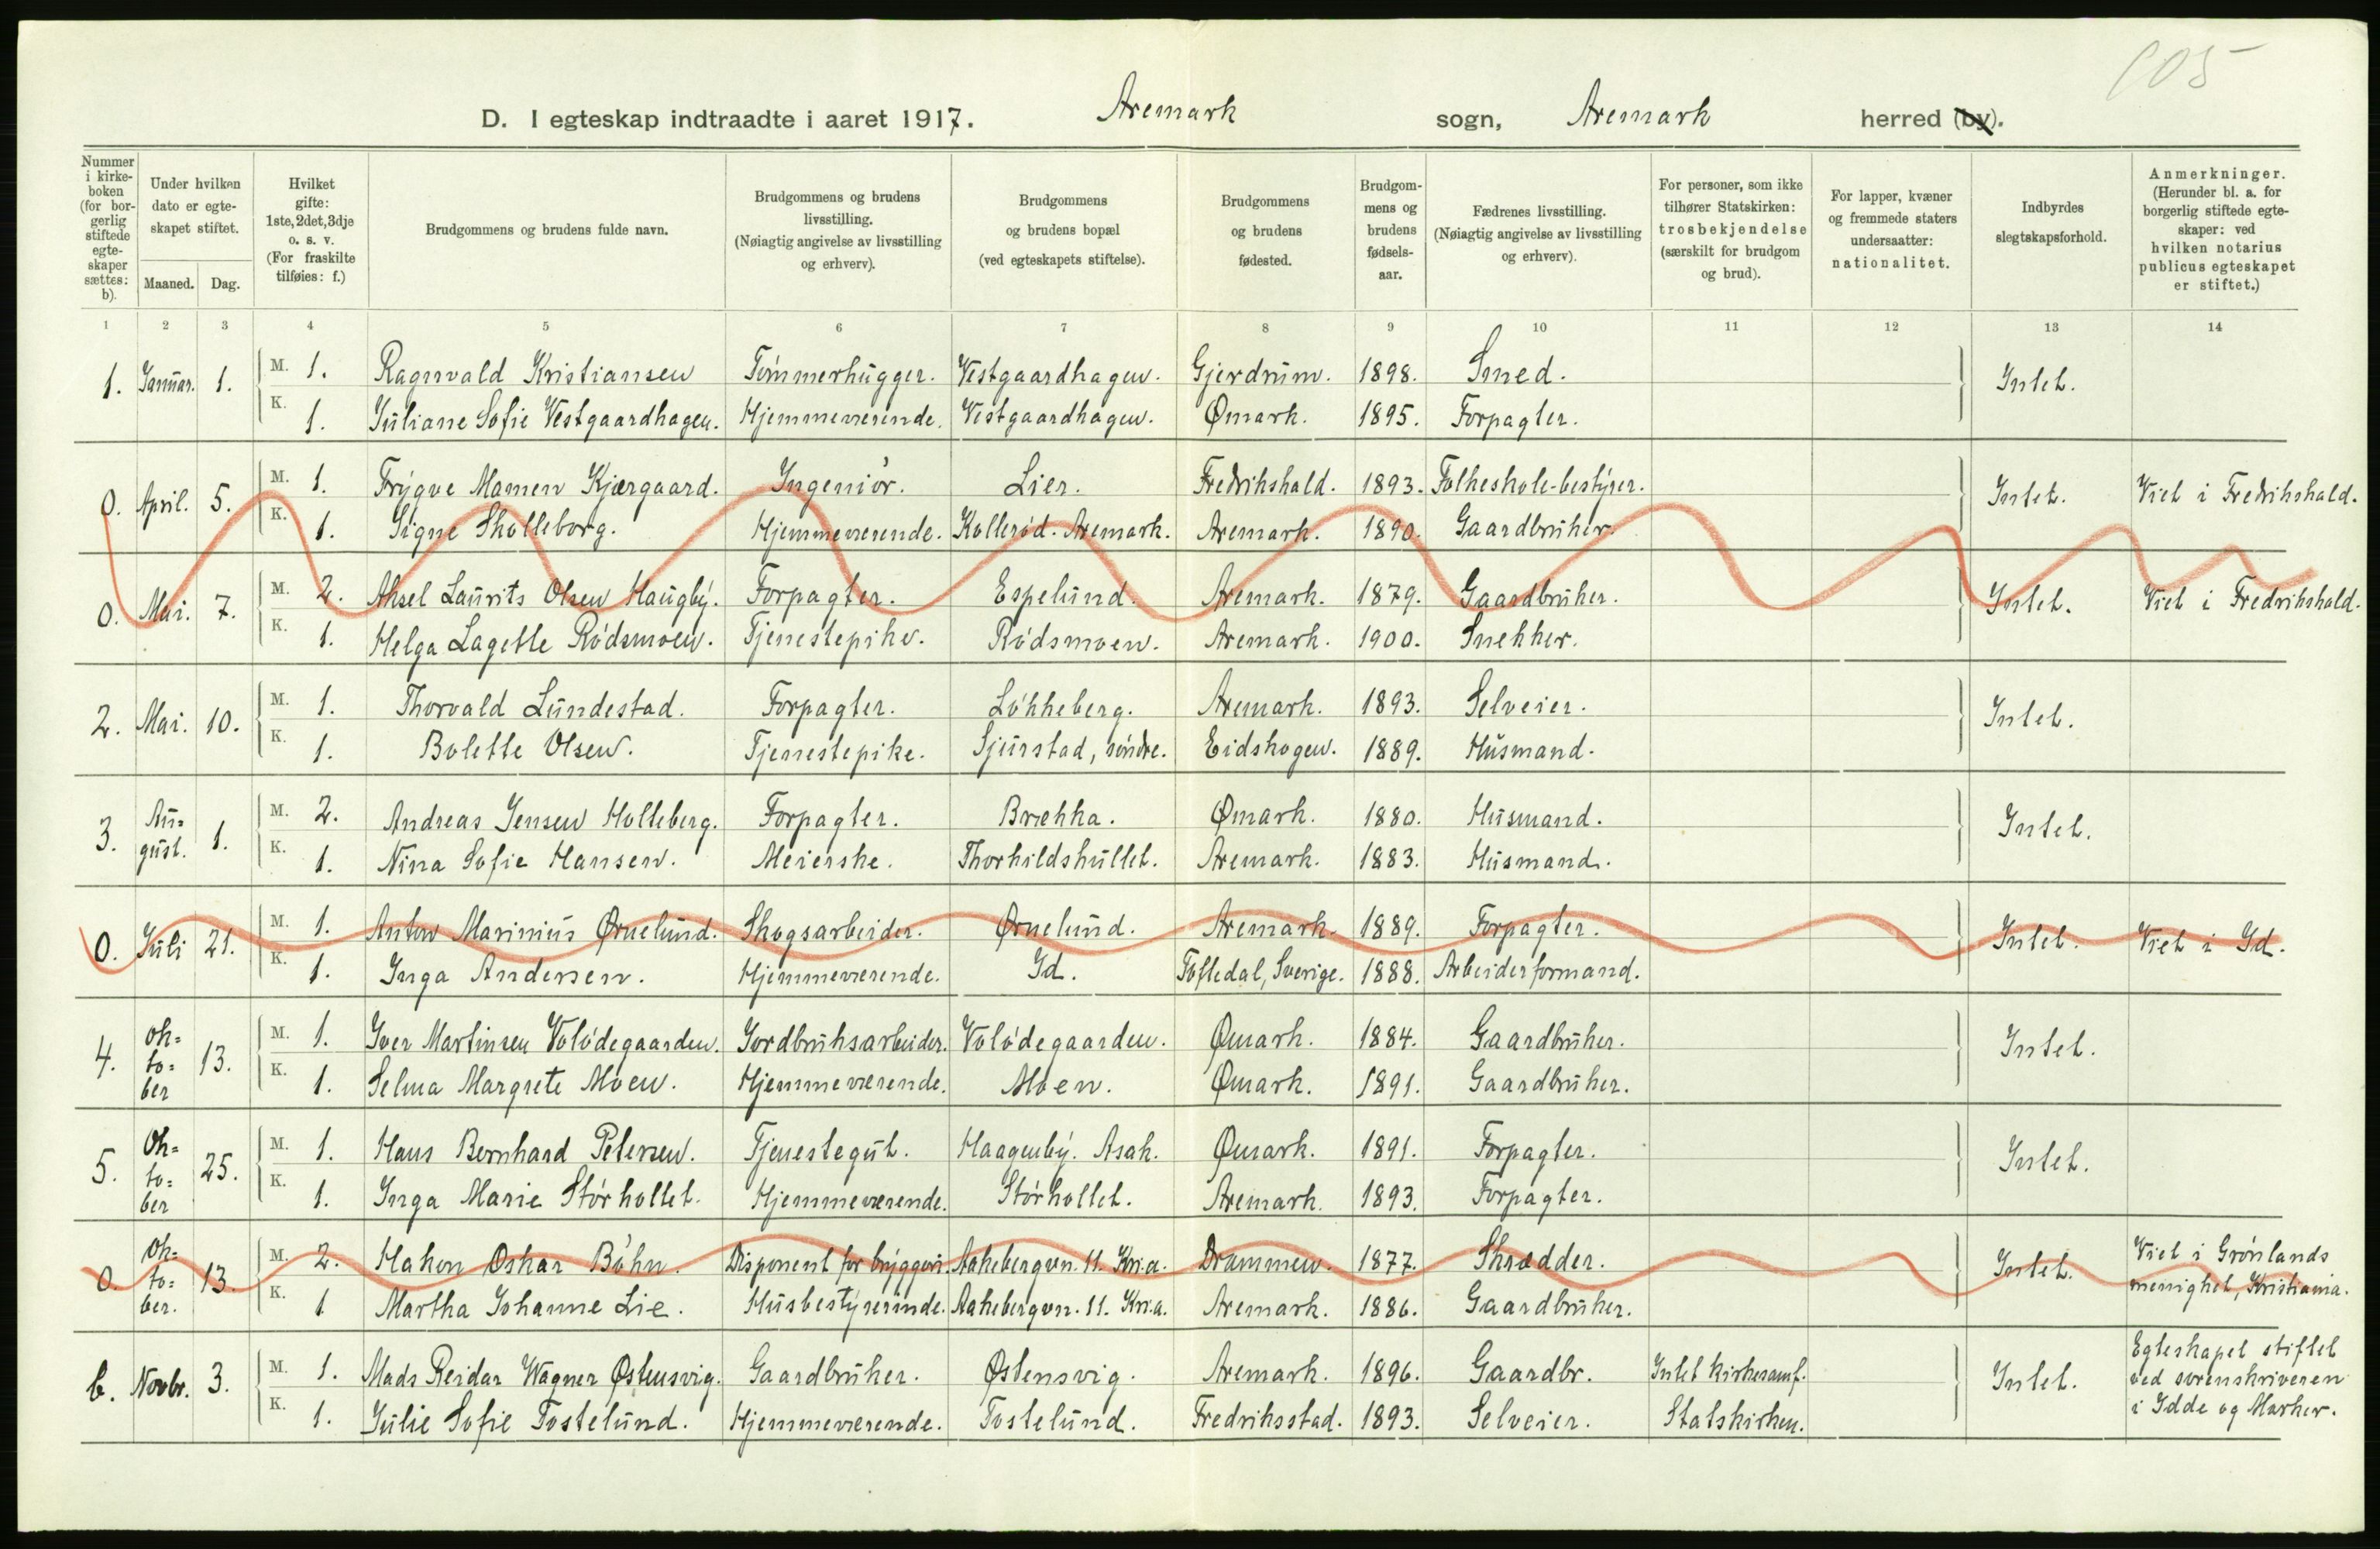 105
D. I egteskap indtraadte i aaret 1917. Aremark sogn, Aremark herred (by).
Nummer i kirke-boken (for bor-gerlig stiftede egte-skaper sættes: b).
Under hvilken dato er egte-skapet stiftet.
Maaned. Dag.
Hvilket gifte: 1ste, 2det, 3dje o. s. v. (For fraskilte tilføies: f.)
Brudgommens og brudens fulde navn.
Brudgommens og brudens livsstilling. (Nøiagtig angivelse av livsstilling og erhverv).
Brudgommens og brudens bopæl (ved egteskapets stiftelse).
Brudgommens og brudens fødested.
Brudgom-mens og brudens fødsels-aar.
Fædrenes livsstilling. (Nøiagtig angivelse av livsstilling og erhverv).
For personer, som ikke tilhører Statskirken: trosbekjendelse (særskilt for brudgom og brud).
For lapper, kvæner og fremmede staters undersaatter: nationalitet.
Indbyrdes slegtskapsforhold.
Anmerkninger. (Herunder bl. a. for borgerlig stiftede egte-skaper: ved hvilken notarius publicus egteskapet er stiftet.)
1 2 3 4 5 6 7 8 9 10 11 12 13 14
1. Januar. 1. M. 1. Ragnvald Kristiansen Tömmerhugger. Vestgaardhagen. Gjerdrum. 1898. Smed. Intet.
K. 1. Juliane Sofie Vestgaardhagen. Hjemmeværende. Vestgaardhagen. Ømark. 1895. Forpagter.
0. April. 5. M. 1. Trygve Mamen Kjærgaard. Ingeniör. Lier. Fredrikshald. 1893. Folkeskole-bestyrer. Intet. Viet i Fredrikshald.
K. 1. Signe Skolleborg. Hjemmeværende. Kolleröd. Aremark. Aremark. 1890. Gaardbruker.
0. Mai. 7. M. 2. Aksel Laurits Olsen Haugby. Forpagter. Espelund. Aremark. 1879. Gaardbruker. Intet. Viet i Fredrikshald.
K. 1. Helga Lagette Rödsmoen. Tjenestepike. Rödsmoen. Aremark. 1900. Snekker.
2. Mai. 10. M. 1. Thorvald Lundestad. Forpagter. Lökkeberg. Aremark. 1893. Selveier. Intet.
K. 1. Bolette Olsen. Tjenestepike. Sjurstad, söndre. Eidskogen. 1889. Husmand.
3. Au=gust. 1. M. 2. Andreas Jensen Holleberg. Forpagter. Brækka. Ømark. 1880. Husmand. Intet.
K. 1. Nina Sofie Hansen. Meierske. Thorkildshullet. Aremark. 1883. Husmand.
0. Juli 21. M. 1. Anton Marinius Ørnelund. Skogsarbeider. Ørnelund. Aremark. 1889. Forpagter. Intet. Viet i Id.
K. 1. Inga Andersen. Hjemmeværende. Id. Töftedal, Sverige. 1888. Arbeiderformand.
4. Ok=to=ber 13. M. 1. Iver Martinsen Volödegaarden. Jordbruksarbeider. Volödegaarden. Ømark. 1884. Gaardbruker. Intet.
K. 1. Selma Margrete Moen. Hjemmeværende. Moen. Ømark. 1891. Gaardbruker.
5. Ok=to=ber 25. M. 1. Hans Bernhard Petersen. Tjenestegut. Haagenby. Asak. Ømark. 1891. Forpagter. Intet.
K. 1. Inga Marie Störkollet. Hjemmeværende. Störkollet. Aremark. 1893. Forpagter.
0. Ok=to=ber. 13. M. 2. Hakon Oskar Böhn. Disponent for bryggeri. Aakebergvn. 11. Kr.a. Drammen. 1877. Skrædder. Intet. Viet i Grönlands
K. 1 Martha Johanne Lie. Husbestyrerinde. Aakebergvn. 11. Kr.a. Aremark. 1886. Gaardbruker. menighet, Kristiania.
6. Novbr. 3. M. 1. Mads Reidar Wagner Østensvig. Gaardbruker. Østensvig. Aremark. 1896. Gaardbr. Intet kirkesamf. Intet. Egteskapet stiftet
ved sorenskriveren
K. 1. Julie Sofie Tostelund. Hjemmeværende. Tostelund. Fredriksstad. 1893. Selveier. Statskirken. i Idde og Marker.